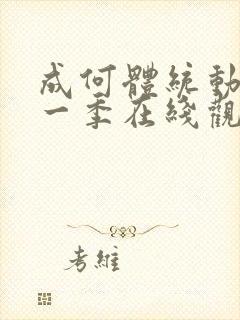 成何體統動
一季在綫觀
考維